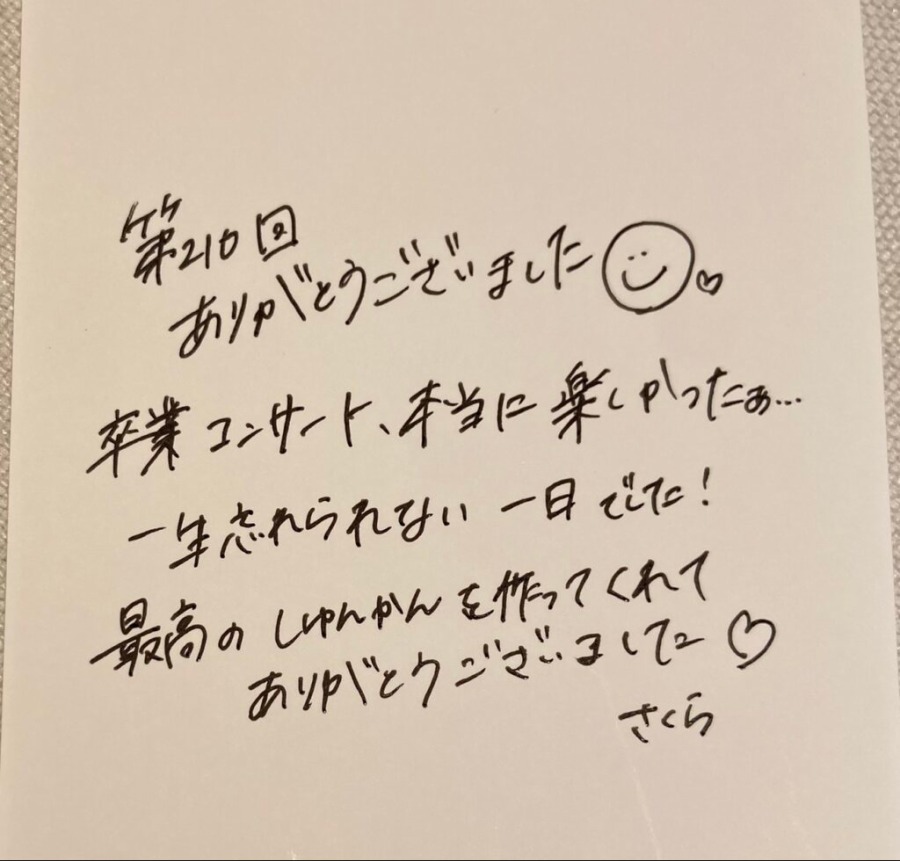 第210回
ありがとうございました
卒業コンサート、本当に楽しかったぁ…
一生忘れられない一日でした!
最高のしゅんかんを作ってくれて
ありがとうございました♡
さくら